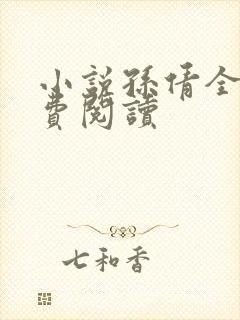 小説孫倩全
費閱讀
七和香